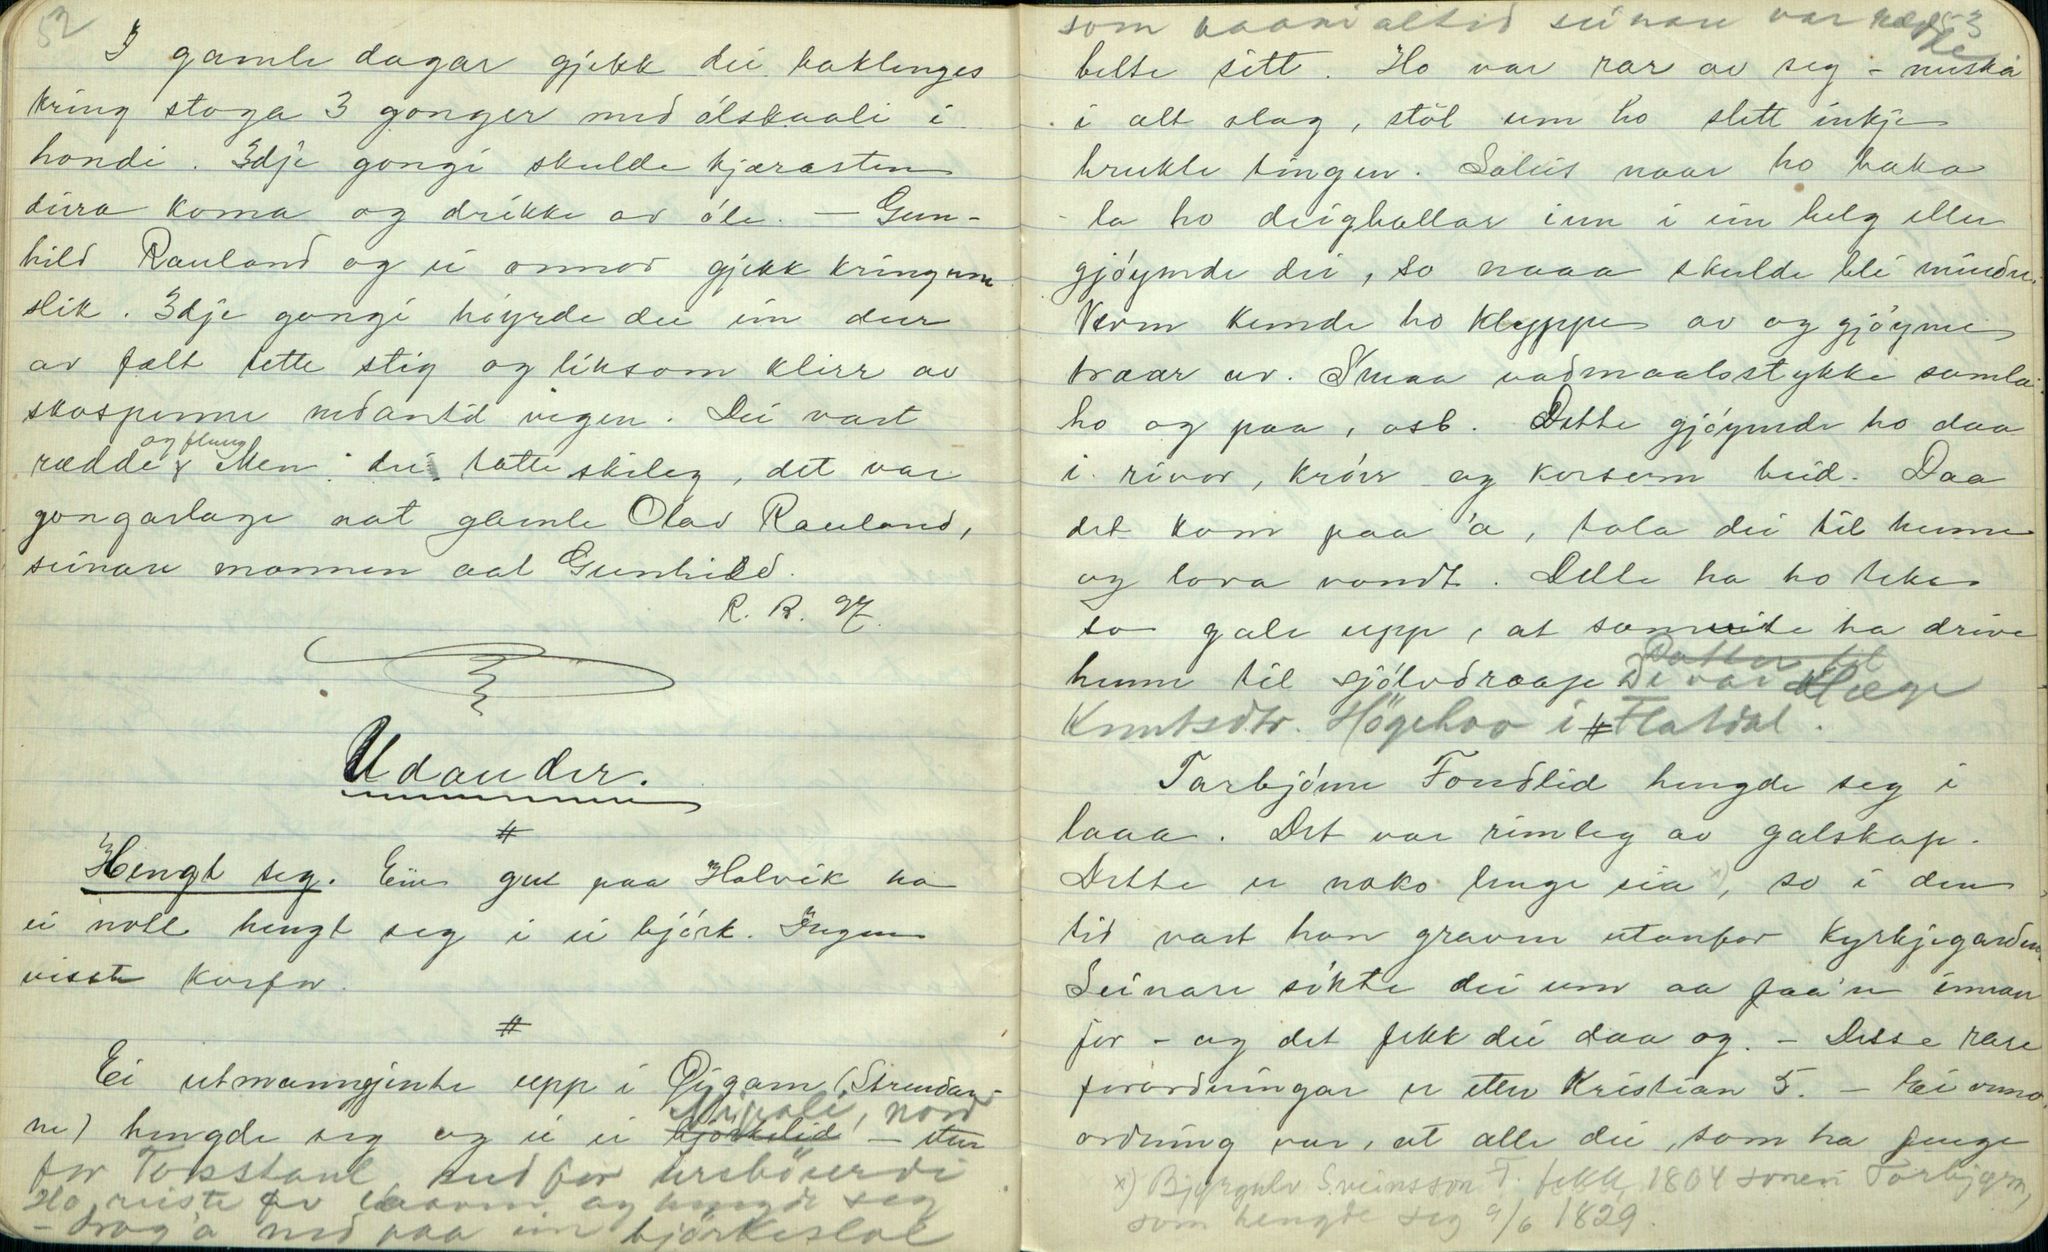 52
I gamle dagar gjekk dei baklenges
kring stoga 3 gonger med ólskaali i
hondi. 3dje gongi skulde kjærasten
deira koma og drikke av óle. — Gun-
hild Rauland og ei onnor gjekk kringum
slik. 3dje gongi hóyrde dei ein dur
av fælt tette stig og liksom klirr av
skospenne nedantil vegen. Dei vart
rædde og flaug. Men dei tatte skileg, det var
gongarlage aat gamle Olav Rauland,
seinare mannen aat Gunhild.
R. B.
Udauder.
#
Hengt seg. Ein gut paa Halvik ha
ei nott hengt seg i ei bjórk. Ingen
visste korfor.
#
Ei utmanngjente upp i Óygam (Strendan-
ne) hengde seg og i ei bjórkelid — nord
for Tosstaul, sud for
Ho reiste av og hengde seg
— drog'a ned paa ein bjørkestal
53
som altid seinare var rædde
belte sitt. Ho var rar av seg – nuska
i alt slag, stól um ho slett inkje
brukte tingen. Soleis naar ho baka
la ho deigballar inn i ein belg eller
gjóymde dei, so naaa skulde bli mindre.
Verm kunde ho klyppe av og gjóyme
traar av. Smaa vadmaalsstykke samla
ho og paa, osb. Dette gjóymde ho daa
i rivor, krórr og korsom heid. Daa
det kom paa 'a, tala dei til henne
og lova vondt. Dette ha ho teke
so gale upp, at same ha drive
henne til sjólvdraap De var Hæge
Knutsdtr. Högehov i Flatdal.
Tarbjónn Fondlid hengde seg i
laaa. Det var rimleg av galskap.
Dette er noko lenge sia x), so i den
tid vart han graven utanfor kyrkjegarden.
Seinare sókte dei um aa faa'n innan
for – og det fekk dei daa og. – Desse rare
forordningar er etter Kristian 5. – Ei onno
ordning var, at alle dei, som ha fenge
x) Bjyrgulv Sveinsson F. fekk 1804 sonen Torbjørn,
som hengde seg 9/6 1829.